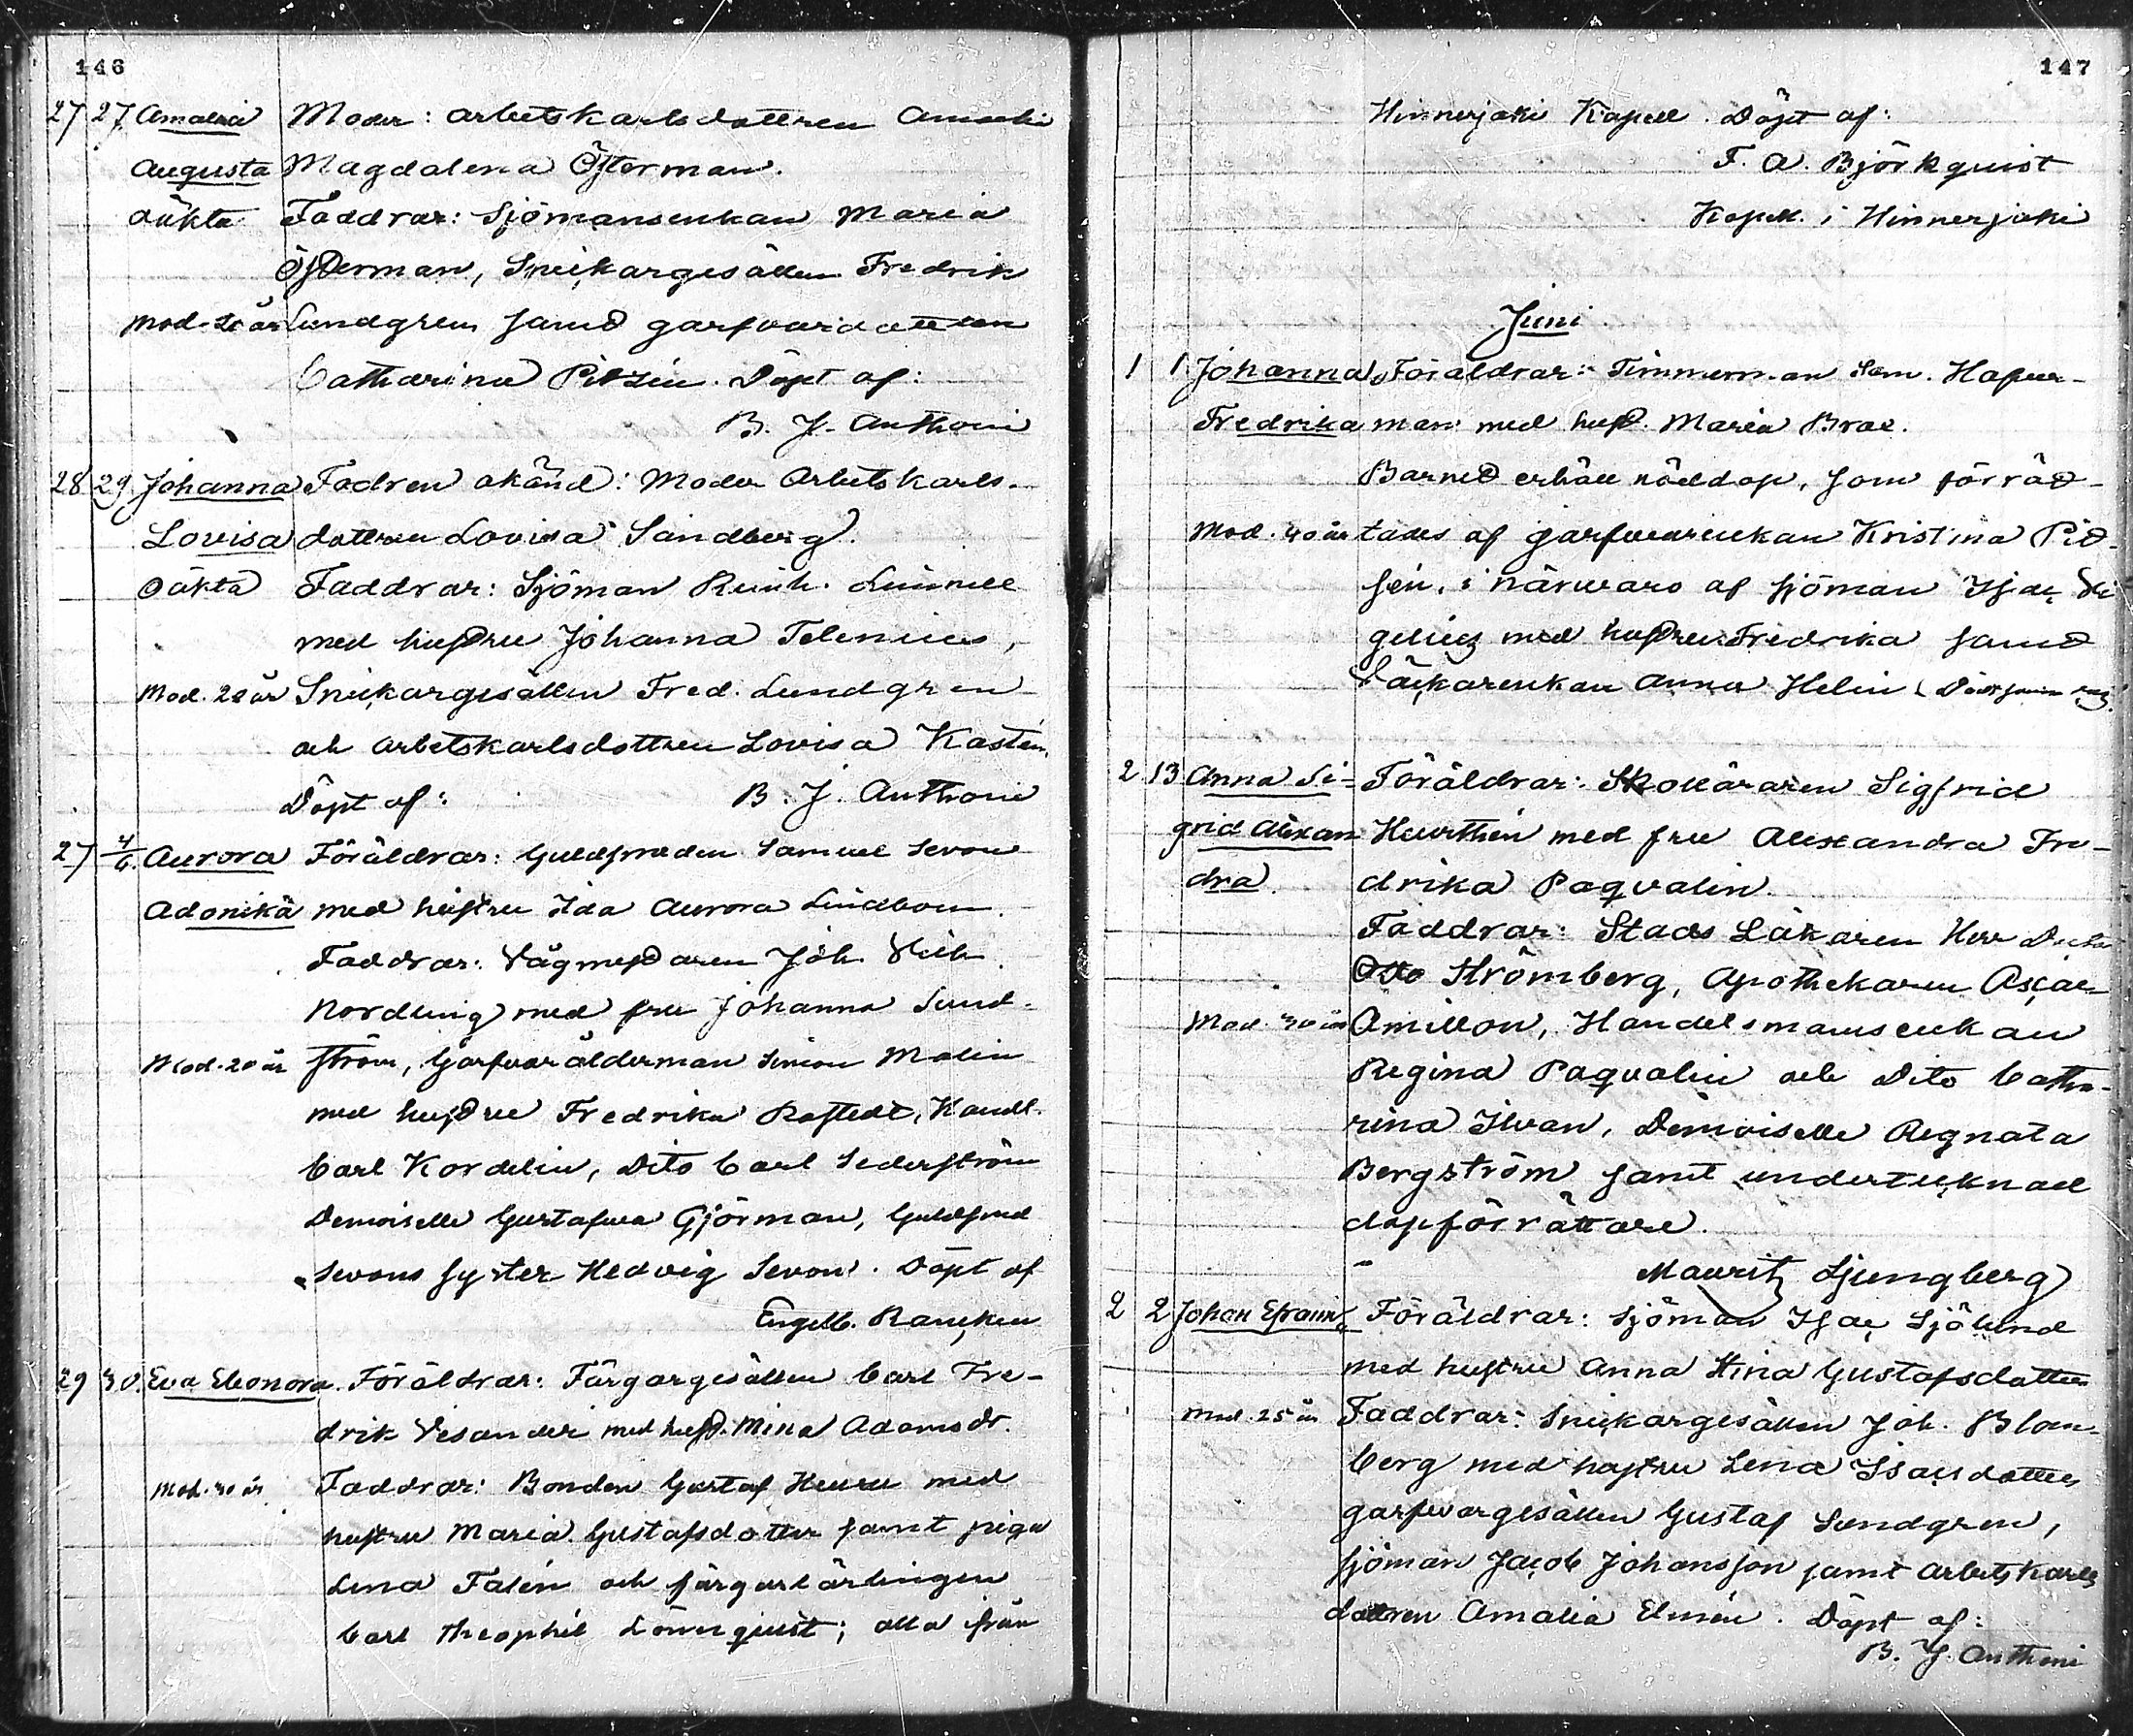 146
27 27 Amalia Moder: arbetskarlsdottren Amalia
Augusta Magdalena Österman.
oäkta Faddrar: Sjömansenkan Maria
Österman, Snickargesällen Fredrik
Mod. 20 år Lundgren samt garfvaredottren
Catharina Pitzén. Döpt af:
B. J. Anthoni
28 29 Johanna Fadren okänd: Moder Arbetskarls-
Lovisa dottren Lovisa Sandberg.
Oäkta Faddrar: Sjöman Reinh. Linnell
med hustru Johanna Telenius,
Mod. 22 år Snickargesällen Fred. Lundgren
och arbetskarlsdottren Lovisa Kastén.
Döpt af: B. J. Anthoni
27 4/6. Aurora Föräldrar: Guldsmeden Samuel Sevon
Adonikä med hustru Ida Aurora Lindbom.
Faddrar: Vågmestaren Joh. Wilh.
Nordling med fru Johanna Sund-
Mod. 20 år ström, Garfvarålderman Simon Malin
med hustru Fredrika Rostedt, Handl.
Carl Kordelin, Dito Carl Sederström
Demoiselle Gustafva Gjörman, Guldsmed
Sevons syster Hedvig Sevon. Döpt af
Engelb. Rancken
29 30. Eva Eleonora. Föräldrar: Färgargesällen Carl Fre-
drik Vesander med hust. Mina Adamsdr.
Mod. 30 år Faddrar: Bonden Gustaf Heuru med
hustru Maria Gustafsdotter samt piga
Lena Falén och färgarlärlingen
Carl Theophil Lönnqvist; alla från
147
Hinnerjoki Kapell. Döpt af:
F. A. Björkquist
Kapell. i Hinnerjoki
Juni
1 1 Johanna Föräldrar: Timmerman Sam. Hafver-
Fredrika man med hust. Maria Brae.
Barnet erhöll nöddop, som förrät-
Mod. 40 år tades af garfvareenkan Kristina Pit-
sén, i närwaro af sjöman Isac Vi
gelius med hustru Fredrika samt
Läckarenkan Anna Helin
2 13 Anna Si- Föräldrar: Skolläraren Sigfrid
grid Alexan- Heurthén med fru Alexandra Fre-
dra drika Paqvalin.
Faddrar: Stads Läkaren Herr Doctor
Otto Strömberg, Apothekaren Oscar
Mod. 30 år Amillon, Handelsmansenkan
Regina Paqvalin och Dito Catha-
rina Ilvan, Demoiselle Regnata
Bergström samt undertecknad
dopförrättare.
Mauritz Ljungberg
2 2 Johan Efraim Föräldrar: Sjöman Isac Sjölund
med hustru Anna Stina Gustafsdotter
Mod. 25 år Faddrar: Snickargesällen Joh. Blom-
berg med hustru Lena Isacsdotter
garfvargesällen Gustaf Lundgren,
sjöman Jacob Johansson samt arbetskarls
dottren Amalia Elmén. Döpt af:
B. J. Anthoni